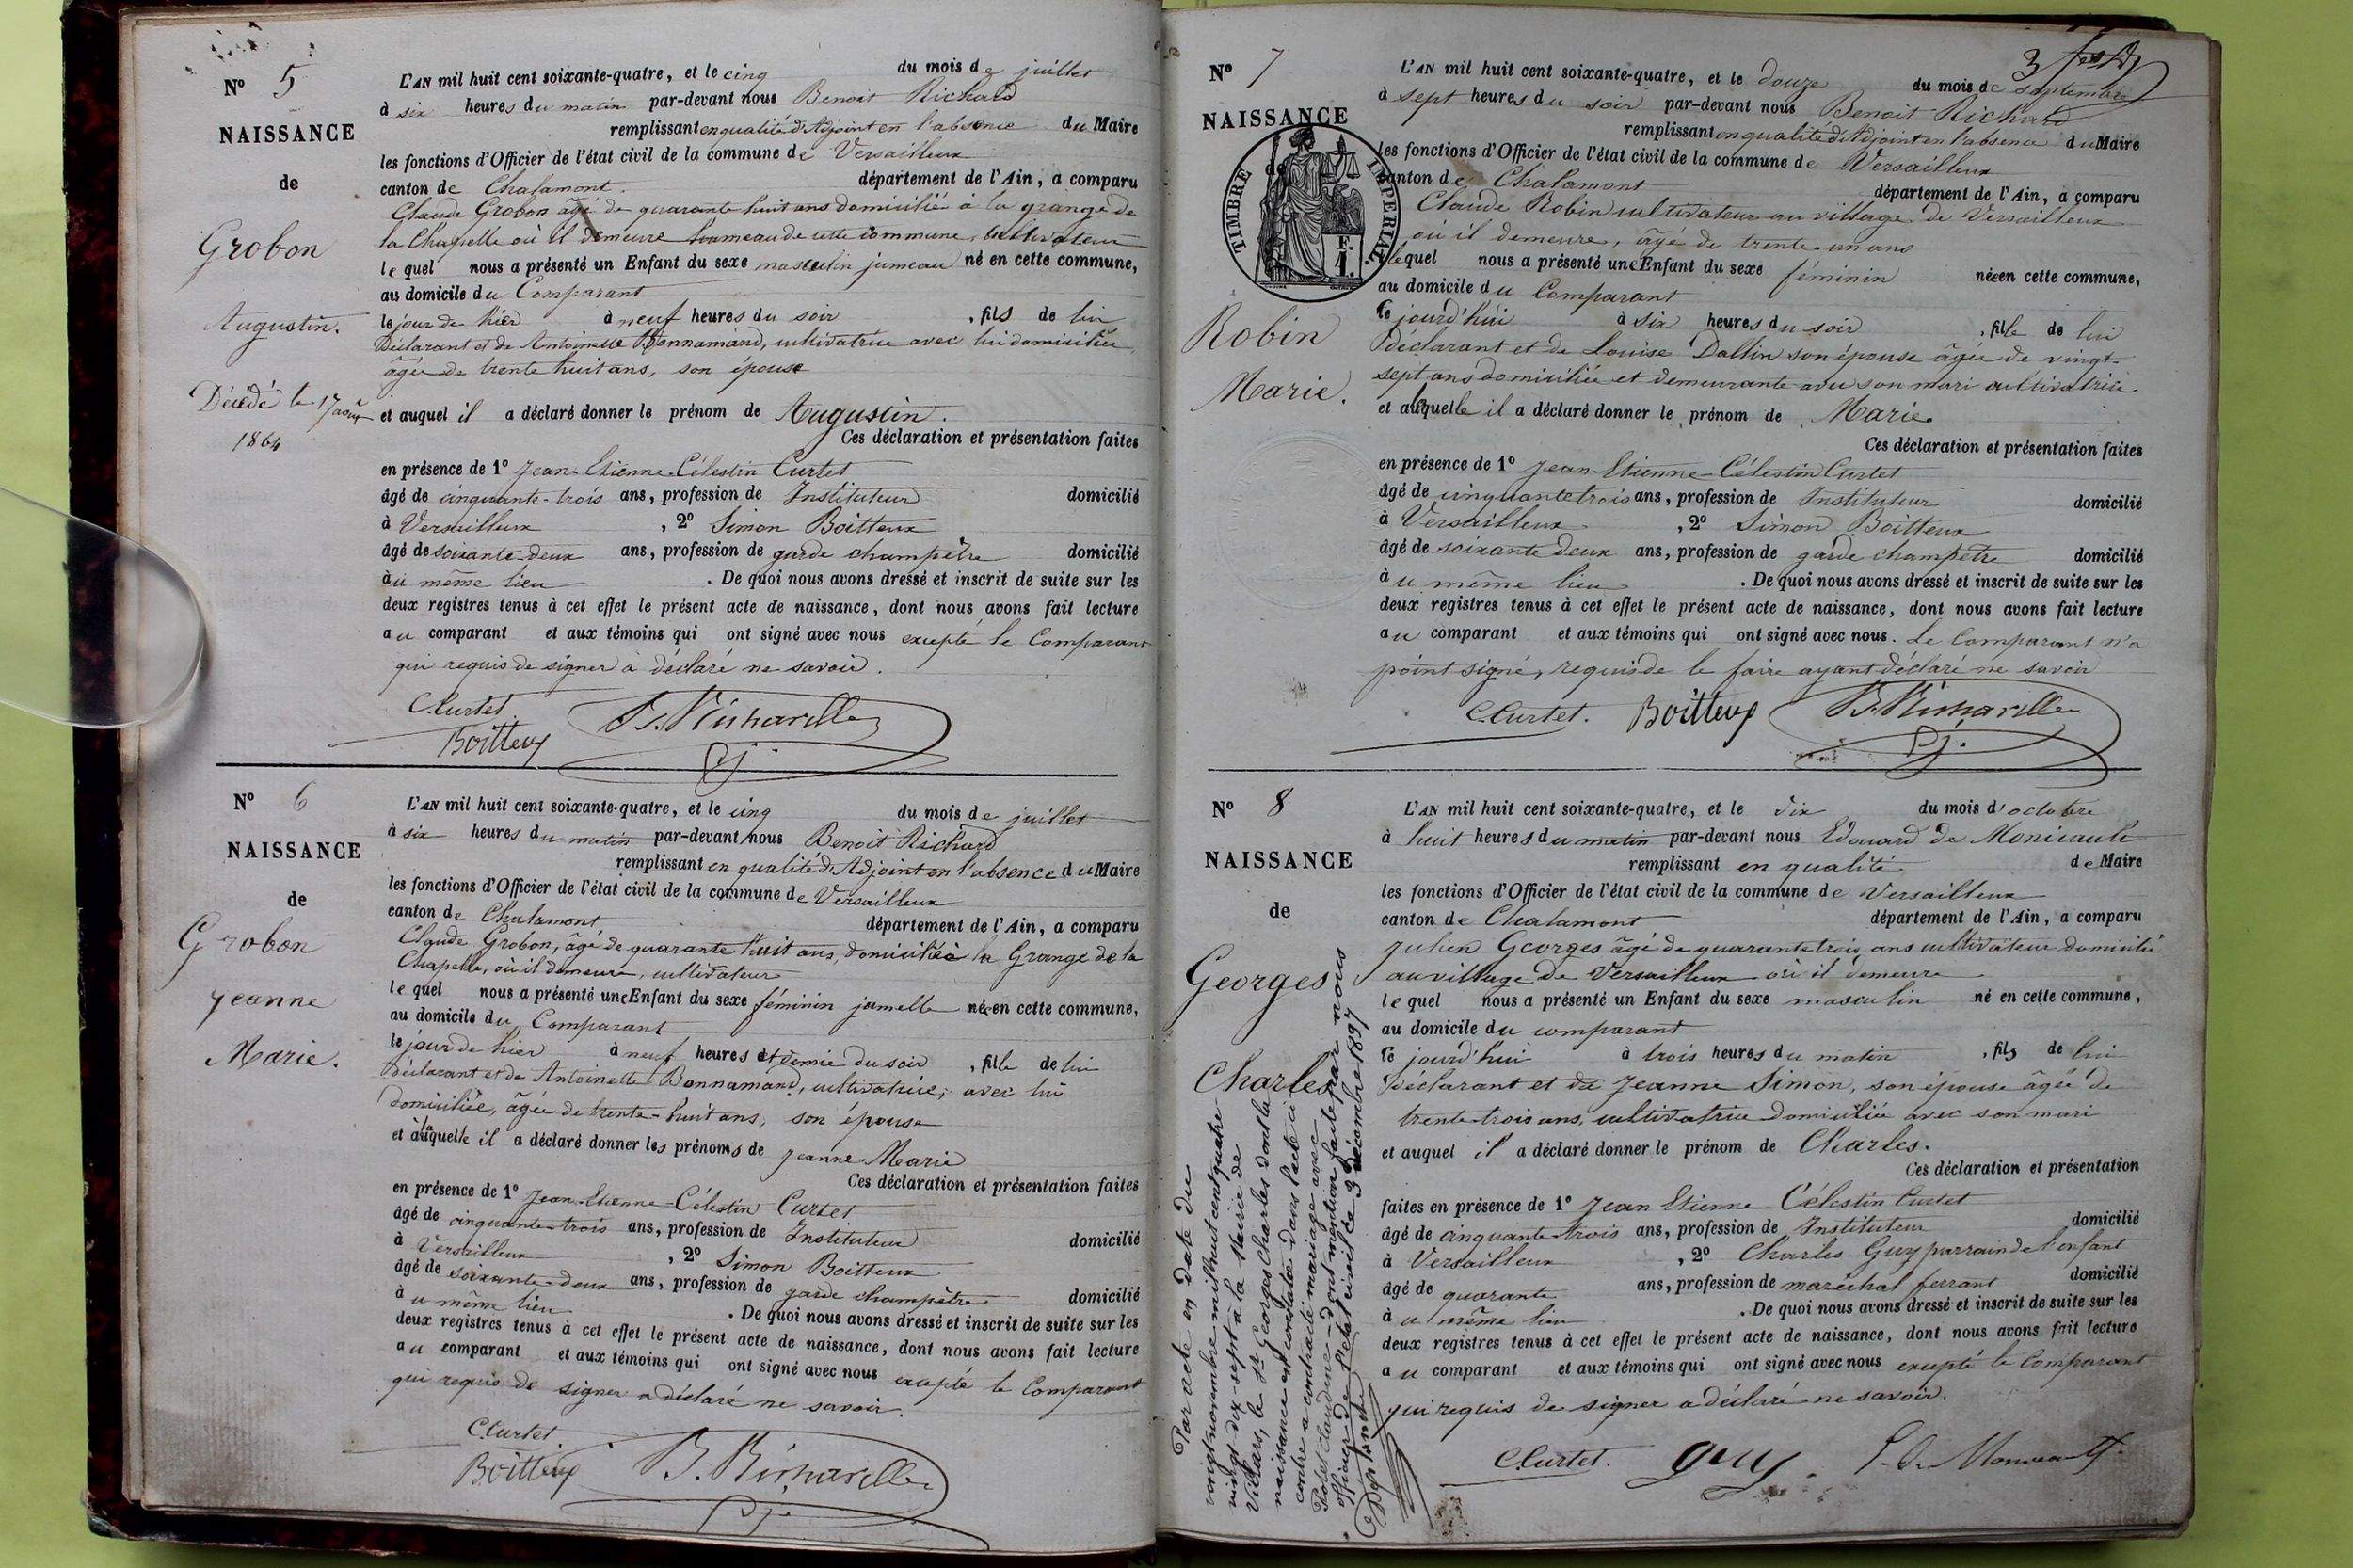 N° 5
NAISSANCE
de
Grobon
Augustin.
Décédé le 17 août
1864
L'AN mil huit cent soixante-quatre, et le cinq du mois de juillet
à six heures du matin par-devant nous Benoit Richard
remplissant en qualité d'Adjoint en l'absence du Maire
les fonctions d'Officier de l'état civil de la commune de Versailleux
canton de Chalamont. département de l'Ain, a comparu
Claude Grobon âgé de quarante huit ans domicilié à la grange de
la Chapelle où il demeure hameau de cette commune, cultivateur
lequel nous a présenté un Enfant du sexe masculin jumeau né en cette commune,
au domicile du Comparant
le jour de hier à neuf heures du soir, fils de lui
Déclarant et de Antoinette Bonnamand, cultivatrice avec lui domiciliée,
âgée de trente huit ans, son épouse
et auquel il a déclaré donner le prénom de Augustin.
Ces déclaration et présentation faites
en présence de 1° Jean-Etienne-Célestin Curtet
âgé de cinquante-trois ans, profession de Instituteur domicilié
à Versailleux, 2° Simon Boitteux
âgé de soixante-deux ans, profession de garde champêtre domicilié
au même lieu. De quoi nous avons dressé et inscrit de suite sur les
deux registres tenus à cet effet le présent acte de naissance, dont nous avons fait lecture
au comparant et aux témoins qui ont signé avec nous excepté le Comparant
qui requis de signer a déclaré ne savoir.
C. Curtet
Boitteux
N° 6
NAISSANCE
de
Grobon
Jeanne
Marie.
L'AN mil huit cent soixante-quatre, et le cinq du mois de juillet
à six heures du matin par-devant nous Benoit Richard
remplissant en qualité d'Adjoint en l'absence du Maire
les fonctions d'Officier de l'état civil de la commune de Versailleux
canton de Chalamont département de l'Ain, a comparu
Claude Grobon, âgé de quarante huit ans, domicilié à la Grange de la
Chapelle, où il demeure, cultivateur
lequel nous a présenté une Enfant du sexe féminin jumelle née en cette commune,
au domicile du Comparant
le jour de hier à neuf heures et demie du soir, fille de lui
déclarant et de Antoinette Bonnamand, cultivatrice, avec lui
domiciliée, âgée de trente-huit ans, son épouse
et à laquelle il a déclaré donner les prénoms de Jeanne-Marie
Ces déclaration et présentation faites
en présence de 1° Jean-Etienne-Célestin Curtet
âgé de cinquante-trois ans, profession de Instituteur domicilié
à Versailleux, 2° Simon Boitteux
âgé de soixante-deux ans, profession de garde champêtre domicilié
au même lieu. De quoi nous avons dressé et inscrit de suite sur les
deux registres tenus à cet effet le présent acte de naissance, dont nous avons fait lecture
au comparant et aux témoins qui ont signé avec nous excepté le Comparant
qui requis de signer a déclaré ne savoir.
C. Curtet
Boitteux
N° 7
NAISSANCE
de
TIMBRE IMPERIAL
Robin
Marie.
L'AN mil huit cent soixante-quatre, et le douze du mois de septembre
à sept heures du soir par-devant nous Benoit Richard
remplissant en qualité d'Adjoint en l'absence du Maire
les fonctions d'Officier de l'état civil de la commune de Versailleux
canton de Chalamont département de l'Ain, a comparu
Claude Robin cultivateur au village de Versailleux
où il demeure, âgé de trente-un ans
lequel nous a présenté une Enfant du sexe féminin née en cette commune,
au domicile du Comparant
ce jourd'hui à six heures du soir, fille de lui
Déclarant et de Louise Dallin son épouse âgée de vingt-
sept ans domiciliée et demeurante avec son mari cultivatrice.
et à laquelle il a déclaré donner le prénom de Marie.
Ces déclaration et présentation faites
en présence de 1° Jean-Etienne-Célestin Curtet
âgé de cinquante trois ans, profession de Instituteur domicilié
à Versailleux, 2° Simon Boitteux
âgé de soixante deux ans, profession de garde champêtre domicilié
au même lieu. De quoi nous avons dressé et inscrit de suite sur les
deux registres tenus à cet effet le présent acte de naissance, dont nous avons fait lecture
au comparant et aux témoins qui ont signé avec nous. Le Comparant n'a
point signé, requis de le faire ayant déclaré ne savoir
C. Curtet. Boitteux
N° 8
NAISSANCE
de
Georges
Charles
Par acte en date du
vingt novembre mil huit cent quatre
vingt dix-sept à la Mairie de
Villars, le Sr Georges Charles dont la
naissance est constatée dans l'acte ci
contre a contracté mariage avec
Claudine dont mention faite par nous
officier de l'état civil ce 3 décembre 1897
L'AN mil huit cent soixante-quatre, et le dix du mois d'octobre
à huit heures du matin par-devant nous Edouard de Monicault
remplissant en qualité de Maire
les fonctions d'Officier de l'état civil de la commune de Versailleux
canton de Chalamont département de l'Ain, a comparu
Julien Georges âgé de quarante trois ans cultivateur domicilié
au village de Versailleux où il demeure
lequel nous a présenté un Enfant du sexe masculin né en cette commune,
au domicile du comparant
ce jourd'hui à trois heures du matin, fils de lui
Déclarant et de Jeanne Simon, son épouse âgée de
trente-trois ans, cultivatrice domiciliée avec son mari
et auquel il a déclaré donner le prénom de Charles.
Ces déclaration et présentation
faites en présence de 1° Jean Etienne Célestin Curtet
âgé de cinquante-trois ans, profession de Instituteur domicilié
à Versailleux, 2° Charles Guy parrain de l'enfant
âgé de quarante ans, profession de maréchal ferrant domicilié
au même lieu. De quoi nous avons dressé et inscrit de suite sur les
deux registres tenus à cet effet le présent acte de naissance, dont nous avons fait lecture
au comparant et aux témoins qui ont signé avec nous excepté le Comparant
qui requis de signer a déclaré ne savoir.
C. Curtet. Guy.